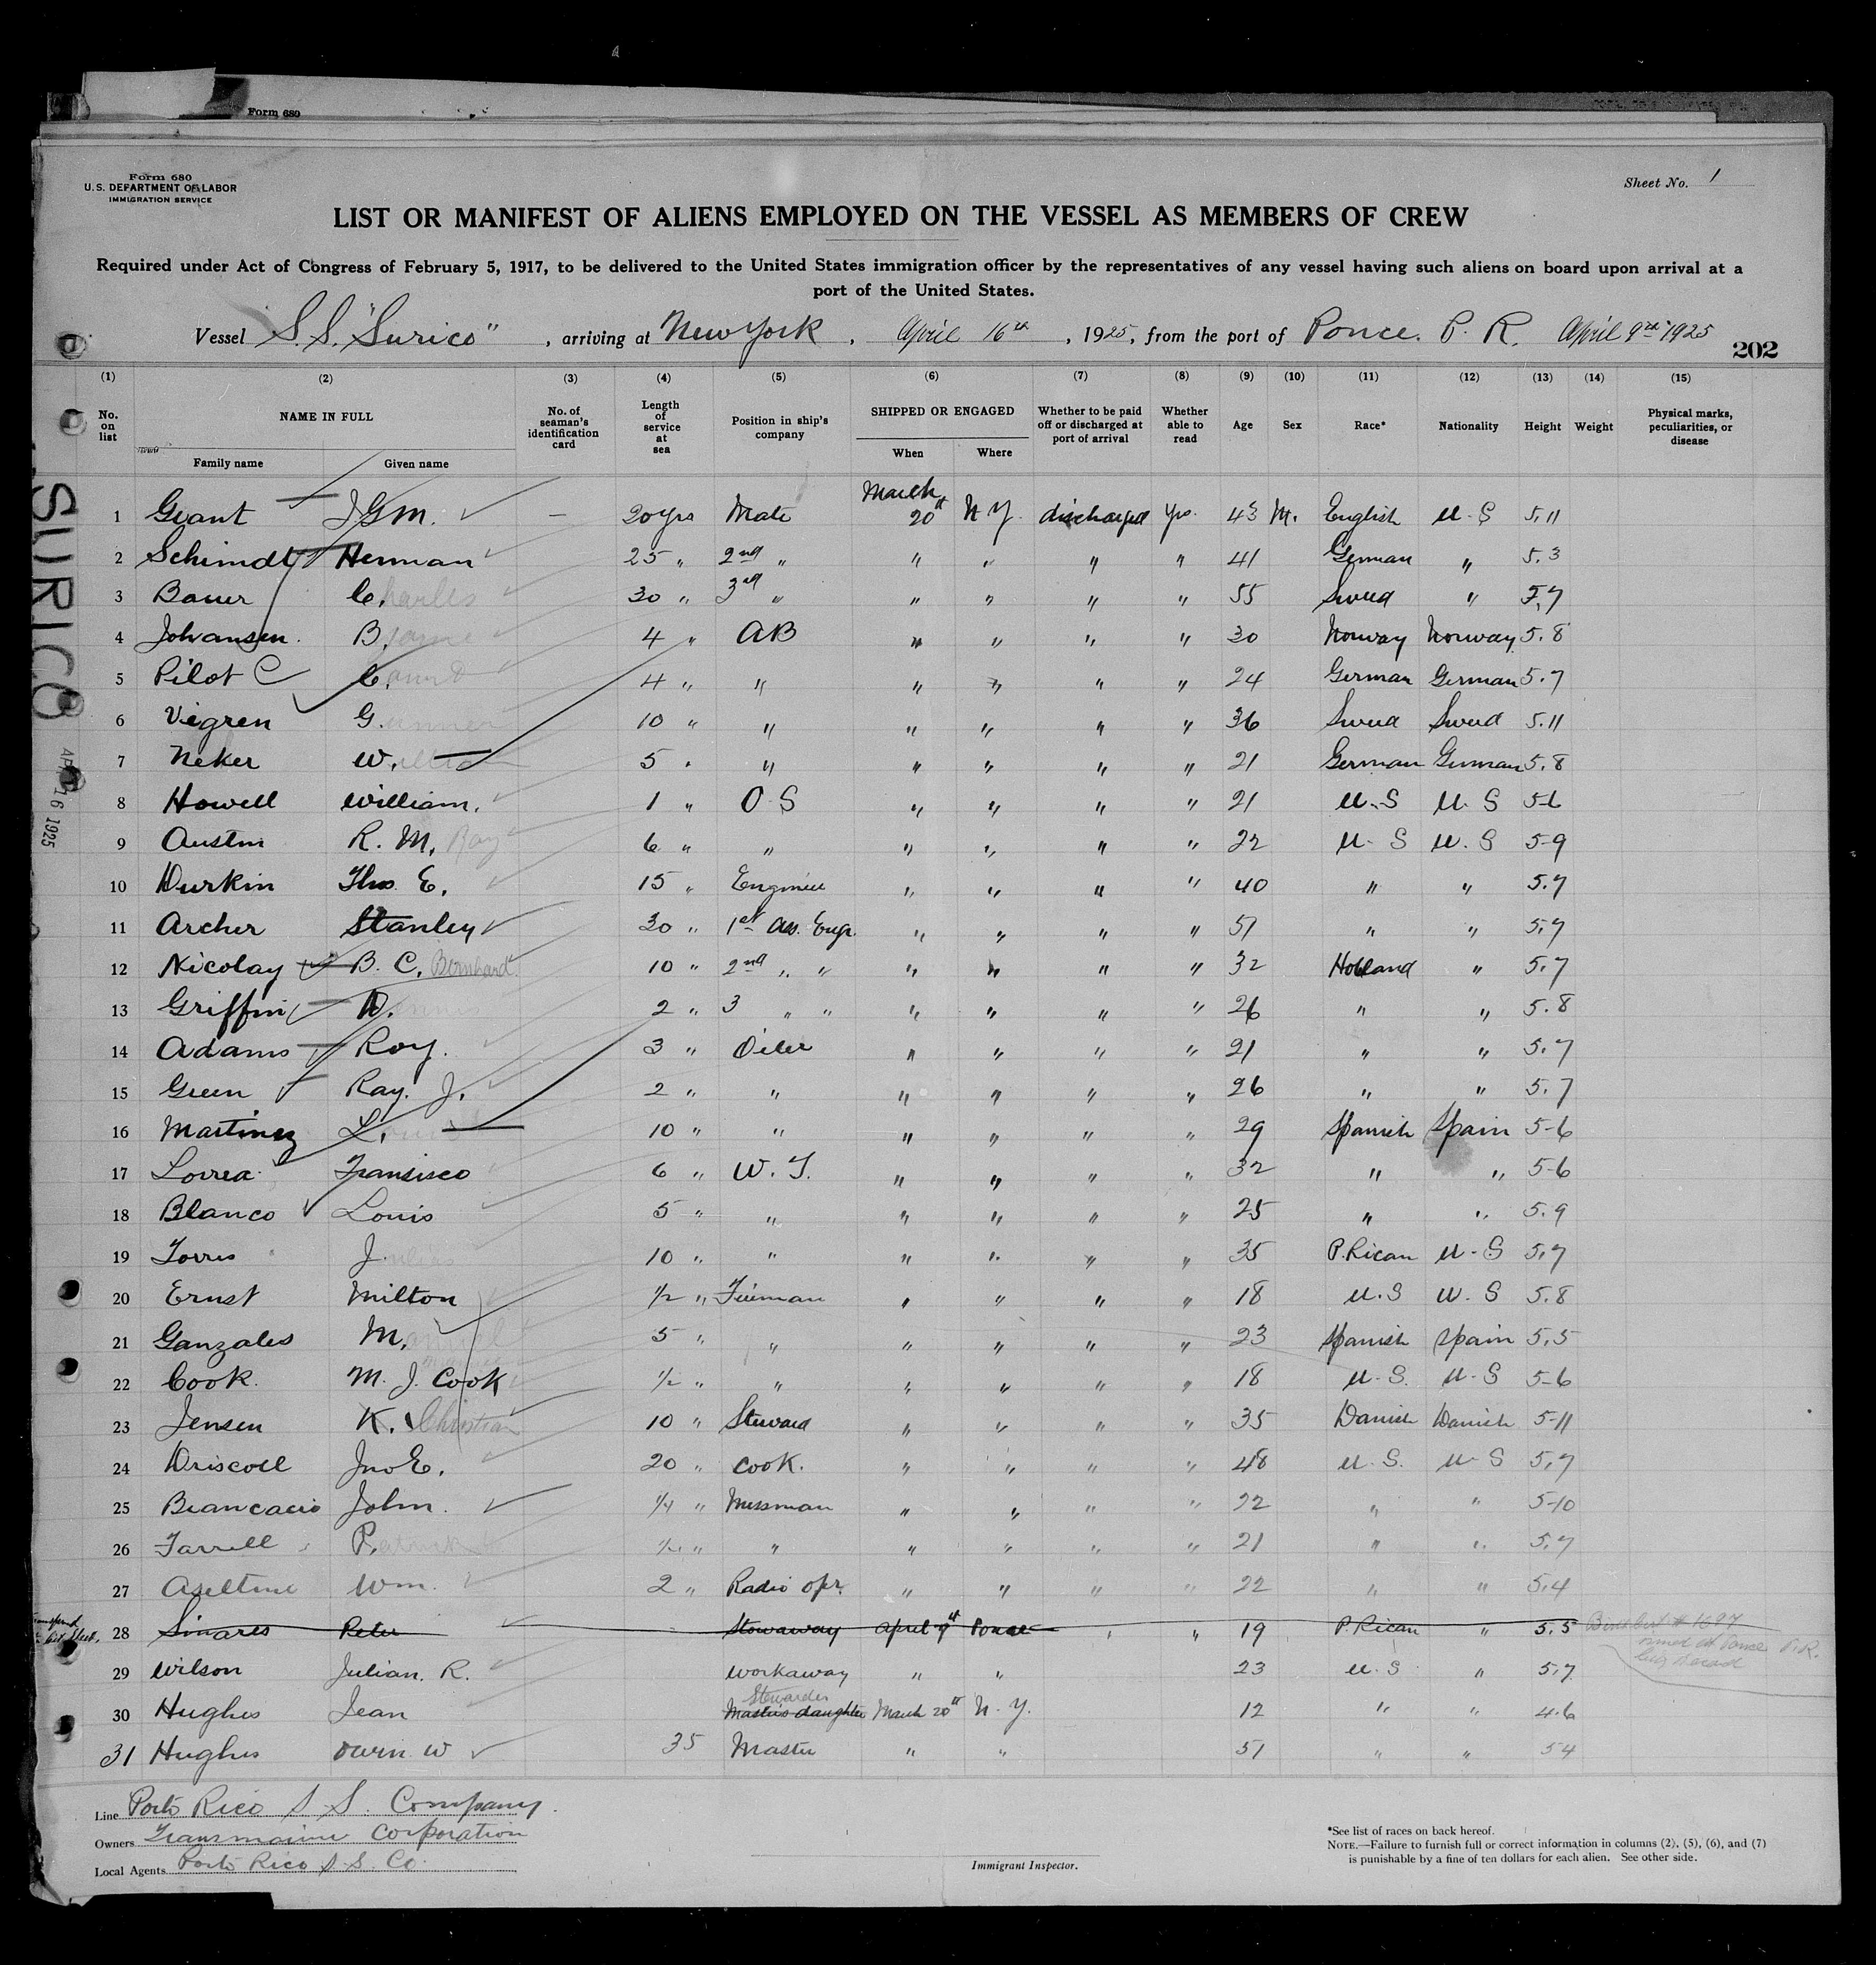 Form 680
Form 680
U.S. DEPARTMENT OF LABOR
IMMIGRATION SERVICE
Sheet No. 1
LIST OR MANIFEST OF ALIENS EMPLOYED ON THE VESSEL AS MEMBERS OF CREW
Required under Act of Congress of February 5, 1917, to be delivered to the United States immigration officer by the representatives of any vessel having such aliens on board upon arrival at a
port of the United States.
Vessel S.S. "Surico", arriving at New York, April 16th, 1925, from the port of Ponce. P. R. April 9th 1925
202
(1) (2) (3) (4) (5) (6) (7) (8) (9) (10) (11) (12) (13) (14) (15)
No. on list NAME IN FULL Family name Given name No. of seaman's identification card Length of service at sea Position in ship's company SHIPPED OR ENGAGED When Where Whether to be paid off or discharged at port of arrival Whether able to read Age Sex Race* Nationality Height Weight Physical marks, peculiarities, or disease
1 Grant J.G.M. — 20 yrs Mate March 20th N.Y. discharged yes. 43 M. English U.S 5.11
2 Schimdt Herman 25 " 2nd " " " " " 41 German " 5.3
3 Bauer C.harles 30 " 3rd " " " " " 55 Swed " 5.7
4 Johansen. B. 4 " AB " " " " 30 Norway Norway 5.8
5 Pilot C C. 4 " " " " " " 24 German German 5.7
6 Vigren G.unner 10 " " " " " " 36 Swed Swed 5.11
7 Neker W. 5 " " " " " " 21 German German 5.8
8 Howell William. 1 " O.S " " " " 21 U.S U.S 5-6
9 Austin R. M. Ray 6 " " " " " " 22 U.S U.S 5-9
10 Durkin Thos. E. 15 " Engineer " " " " 40 " " 5.7
11 Archer Stanley 30 " 1st Ass. Engr. " " " " 51 " " 5.7
12 Nicolay B. C. Bernhard 10 " 2nd " " " " " " 32 Holland " 5.7
13 Griffin D.ennis 2 " 3 " " " " " " 26 " " 5.8
14 Adams Roy. 3 " Oiler " " " " 21 " " 5.7
15 Green Ray. J. 2 " " " " " " 26 " " 5.7
16 Martinez L. 10 " " " " " " 29 Spanish Spain 5-6
17 Lorrea Fransisco 6 " W.T. " " " " 32 " " 5-6
18 Blanco Louis 5 " " " " " " 25 " " 5.9
19 Torres J.ulias 10 " " " " " " 35 P.Rican U.S 5.7
20 Ernst Milton 1/2 " Fireman " " " " 18 U.S U.S 5.8
21 Ganzales M.anuel 5 " " " " " " 23 Spanish Spain 5.5
22 Cook. M. J. Cook 1/2 " " " " " " 18 U.S. U.S 5-6
23 Jensen K. Christian 10 " Steward " " " " 35 Danish Danish 5-11
24 Driscoll Jno E. 20 " Cook. " " " " 48 U.S. U.S 5.7
25 Biancacio John. 1/4 " Messman " " " " 22 " " 5-10
26 Farrell P.atrick 1/2 " " " " " " 21 " " 5.7
27 Aseltine Wm. 2 " Radio opr. " " " " 22 " " 5.4
28 Sinares Peter Stowaway April 9th Ponce " " 19 P.Rican " 5.5
29 Wilson Julian. R. Workaway " " 23 U.S. " 5.7
30 Hughes Jean Master's daughter Stewardes March 20th N.Y. 12 " " 4.6
31 Hughes Owin W 35 Master " " 51 " " 54
SURICO
APR 16 1925
Line Porto Rico S.S. Company.
Owners Transmarine Corporation
Local Agents Porto Rico S.S. Co.
Immigrant Inspector.
*See list of races on back hereof.
NOTE.—Failure to furnish full or correct information in columns (2), (5), (6), and (7)
is punishable by a fine of ten dollars for each alien. See other side.